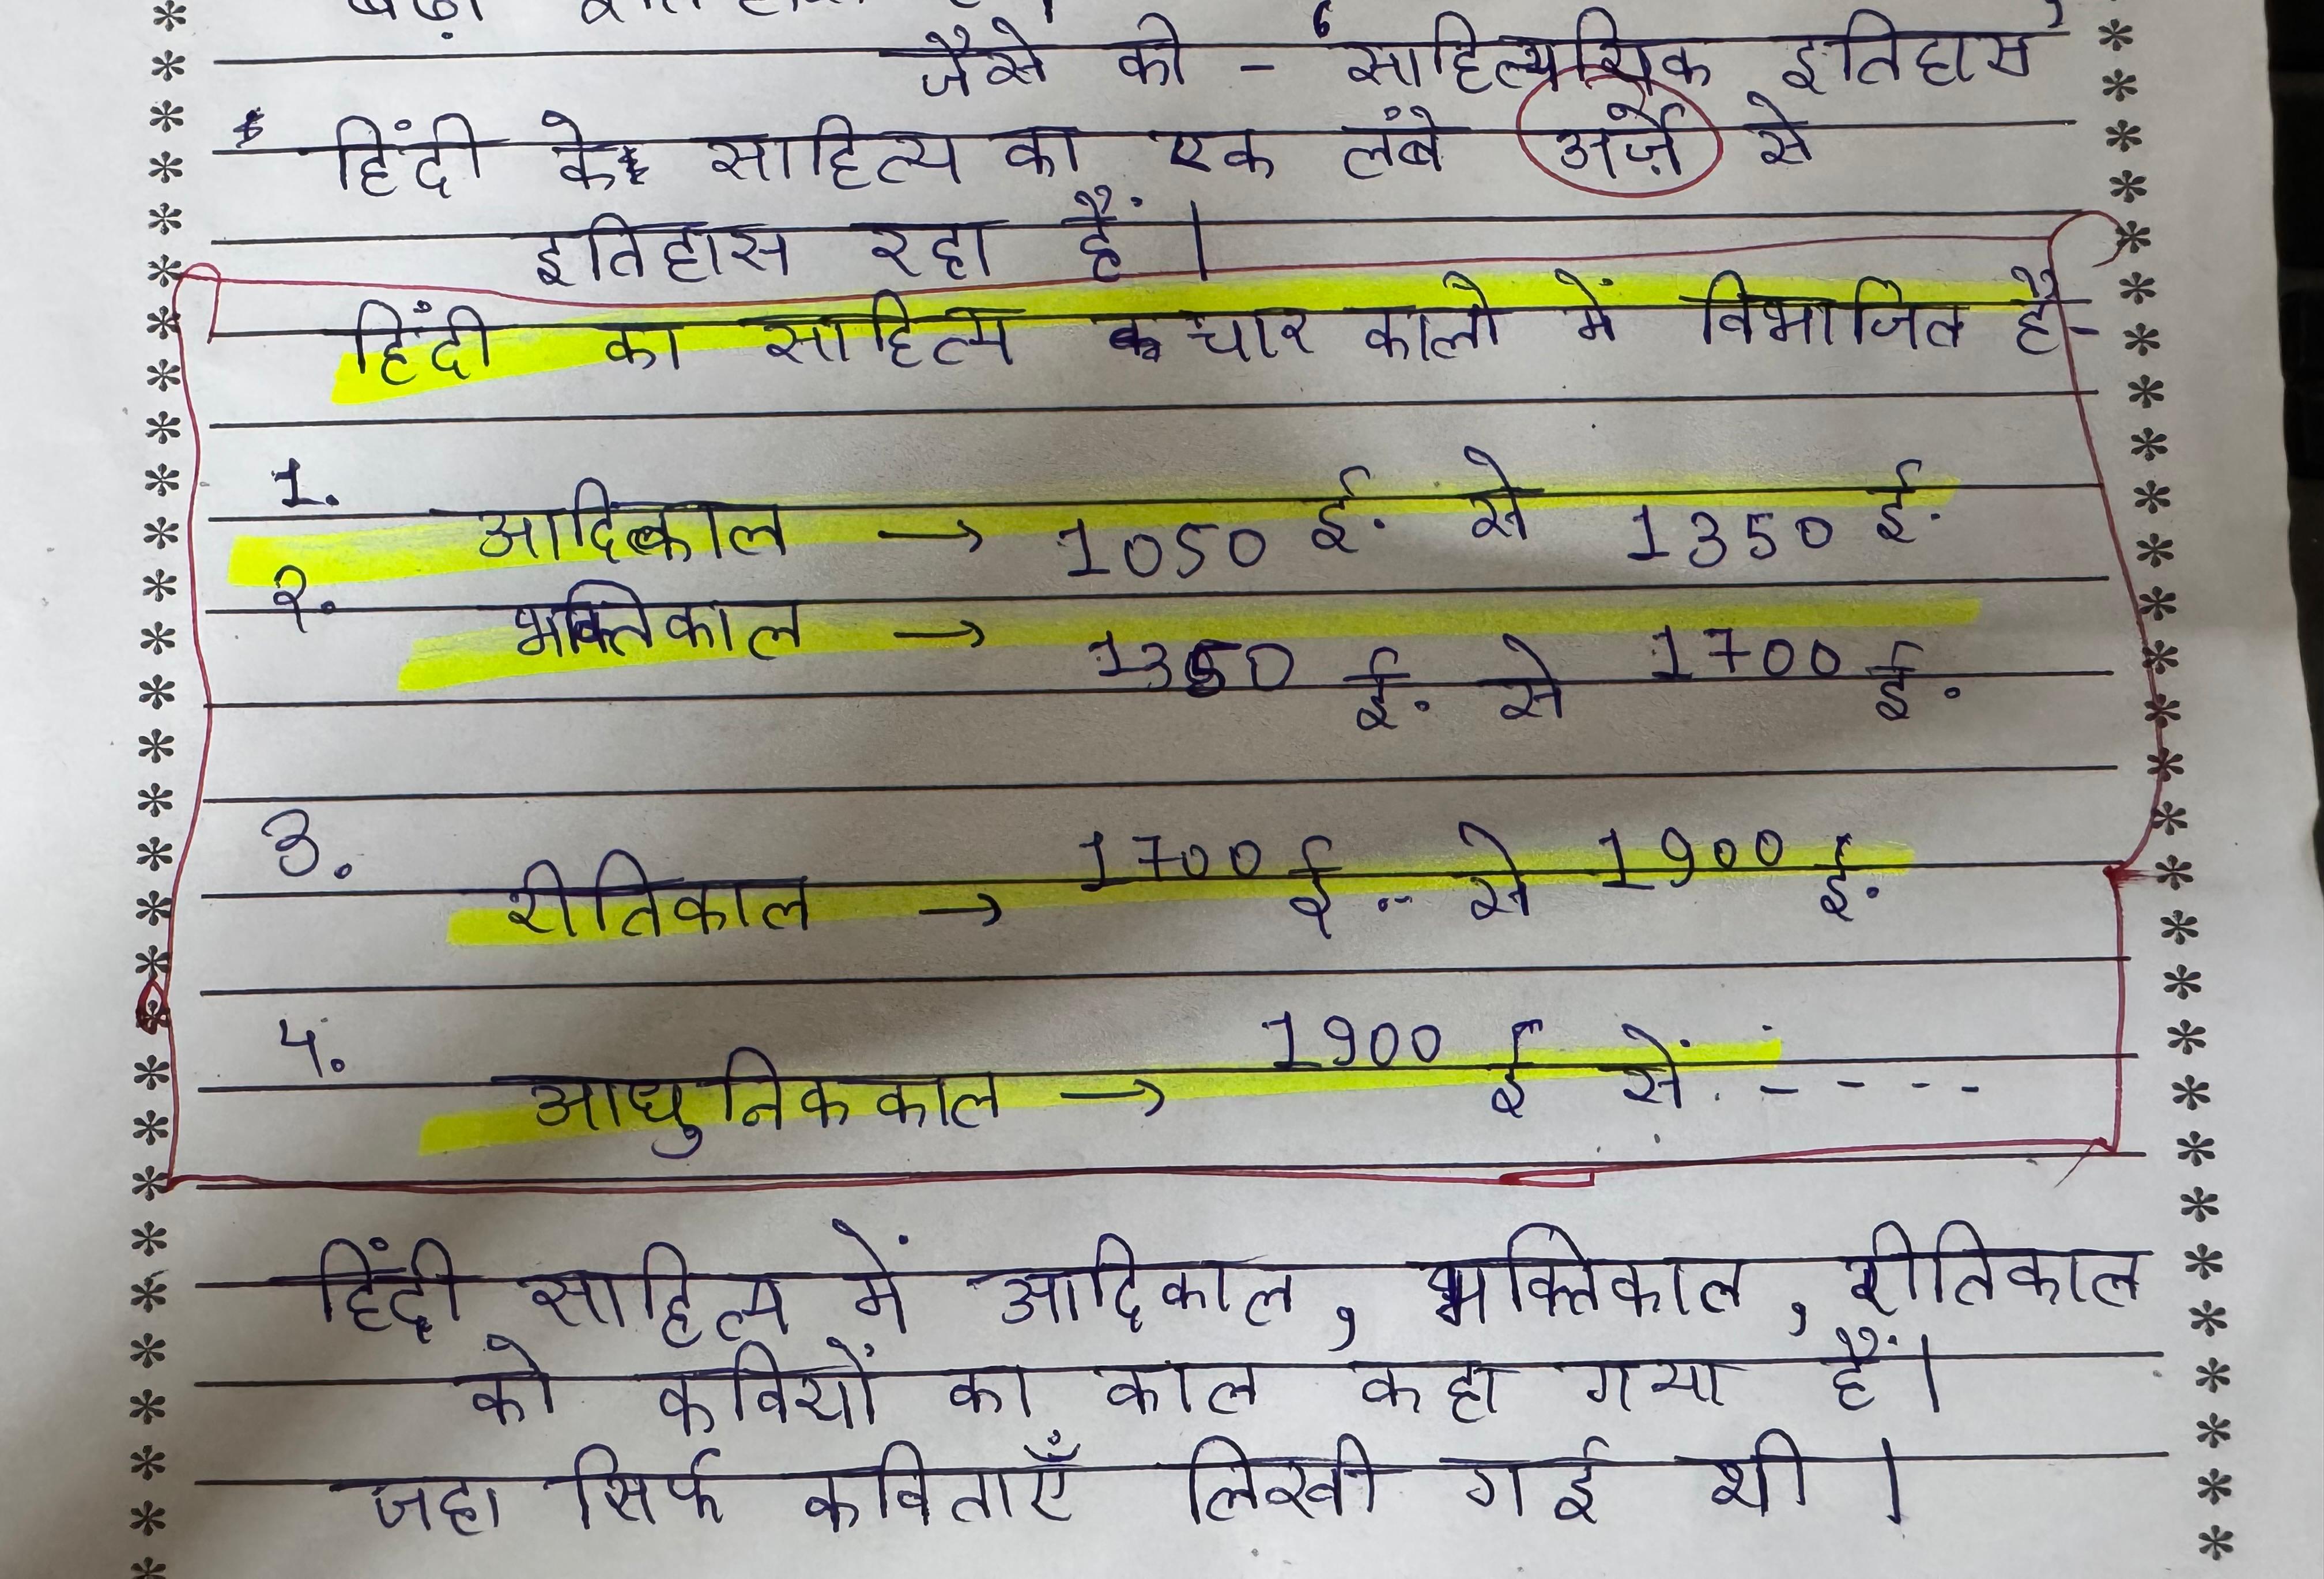 जैसे की - 'साहित्यियिक इतिहास'
हिंदी के साहित्य का एक लंबे अर्ज़े से
इतिहास रहा हैं।
हिंदी का साहित्य चार कालो में विभाजित है-
1. आदिकाल → 1050 ई. से 1350 ई.
२. भक्तिकाल → 1350 ई. से 1700 ई.
3. रीतिकाल → 1700 ई. से 1900 ई.
4. आधुनिककाल → 1900 ई से. - - - -
हिंदी साहित्य में आदिकाल, भक्तिकाल, रीतिकाल
को कवियों का काल कहा गया हैं।
जहा सिर्फ कविताएँ लिखी गई थी।